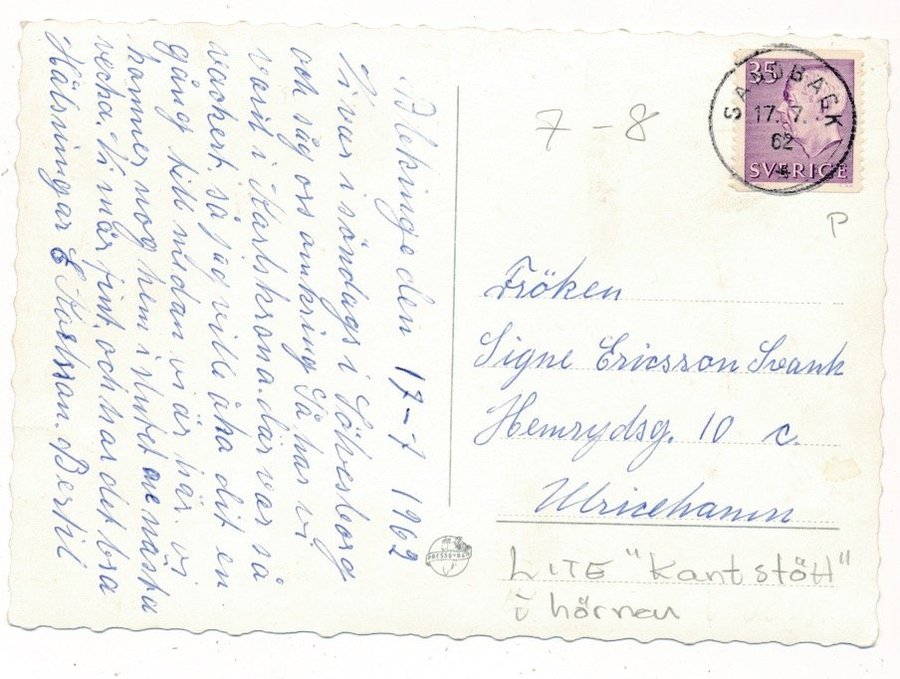 Blekinge den 17-7 1962
Vi var i söndags i Sölvesborg
och såg oss omkring Så har vi
varit i Karlskrona. där var så
vackert, så jag ville åka dit en
gång till medan vi är här. vi
kommer nog hem i slutet av nästa
vecka. Vi mår fint och har det bra
Hälsningar E Karlsson. Bertil
7-8
35
SANDBÄCK
17. 7.
62
SVERIGE
P
Fröken
Signe Ericsson Svank
Hemrydsg. 10 c.
Ulricehamn
PRESSBYRÅN
LITE "Kantstött"
i hörnen